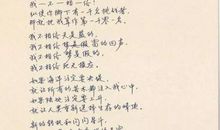 我—不—相—信！
纵使你脚下有一千名挑战者，
那就把我算作第一千零一名。
我不相信天是蓝的，
我不相信雷的回声，
我不相信梦是假的，
我不相信死无报应。
如果海洋注定要决堤，
就让所有的苦水都注入我心中，
如果陆地注定要上升，
就让人类重新选择生存的峰顶。
新的转机和闪闪星斗，